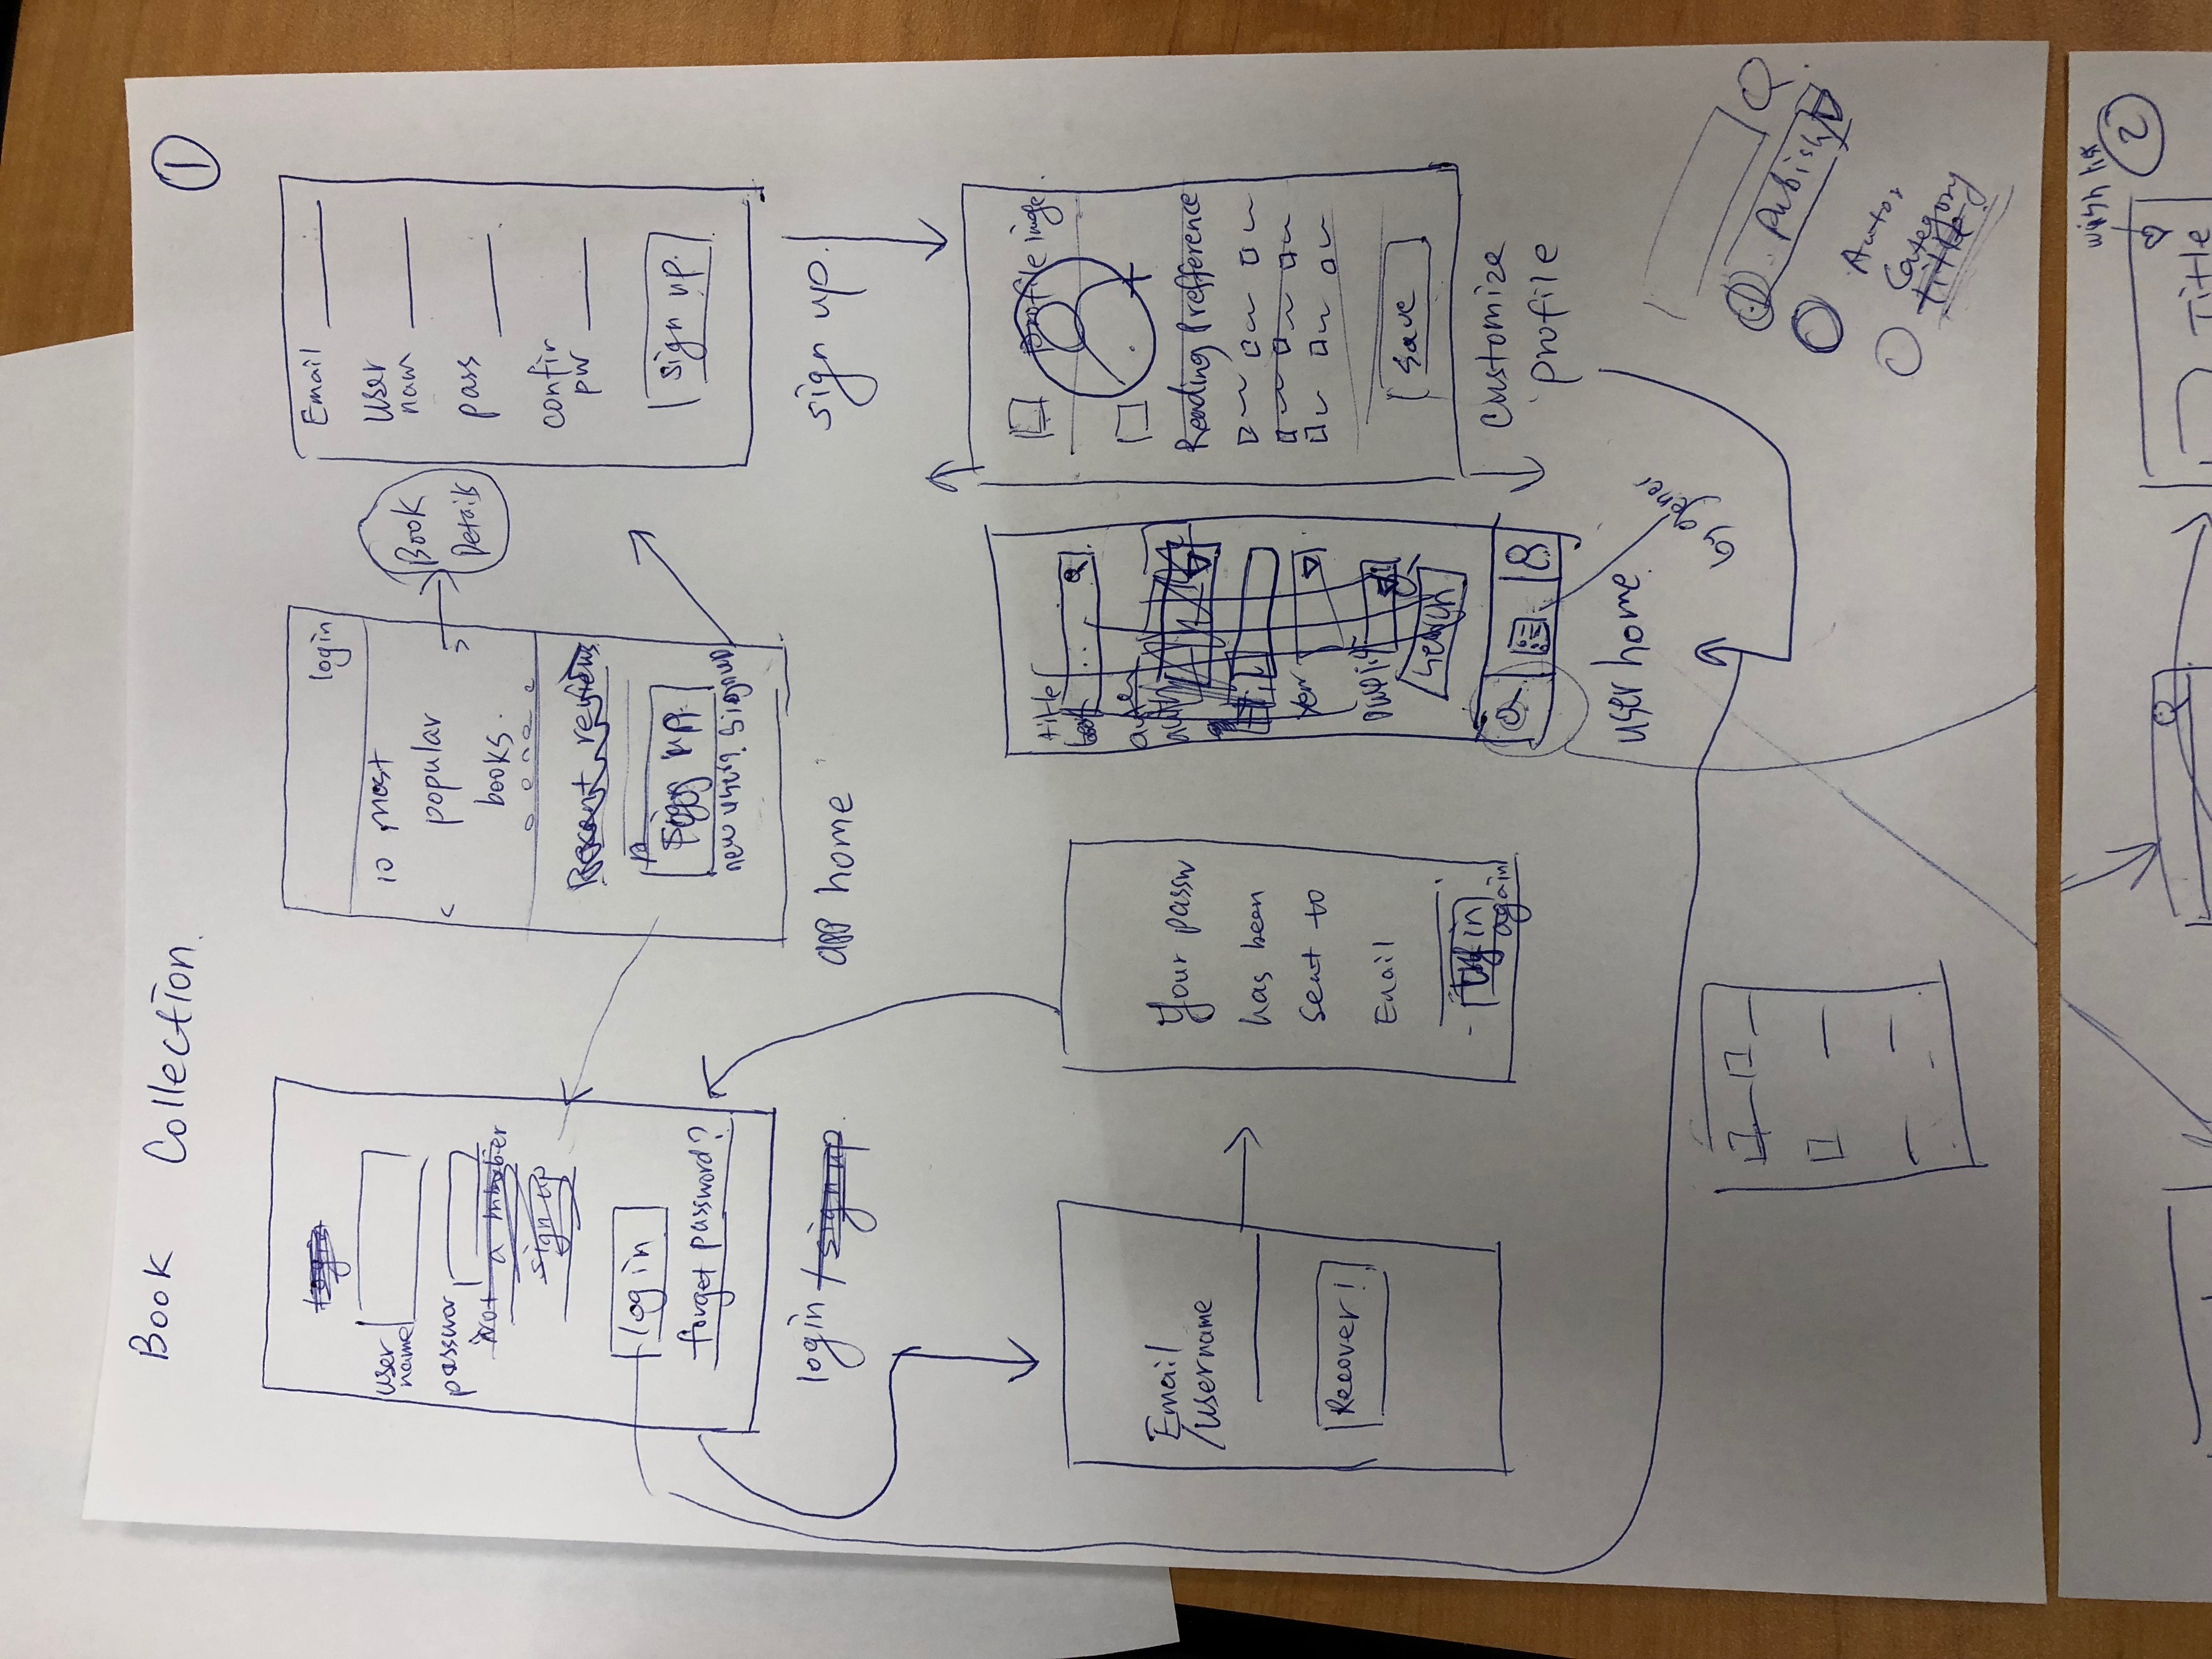 Book Collection.
1
login
user
name
passwor
Not a member
sign up
login
forget password?
login / sign up.
login
10 most
popular
books.
Recent reviews
sign up.
new user? Signup
app home
Book
Details
Email
user
nam
pass
confir
pw
sign up.
sign up.
Email
/username
Recover!
Your passw
has been
sent to
Email
again
title
Year
Search
user home
by gener
profile image
Reading Prefference
Save
Customize
profile
Pubish
Autor
Category
title
wish list
2
Title